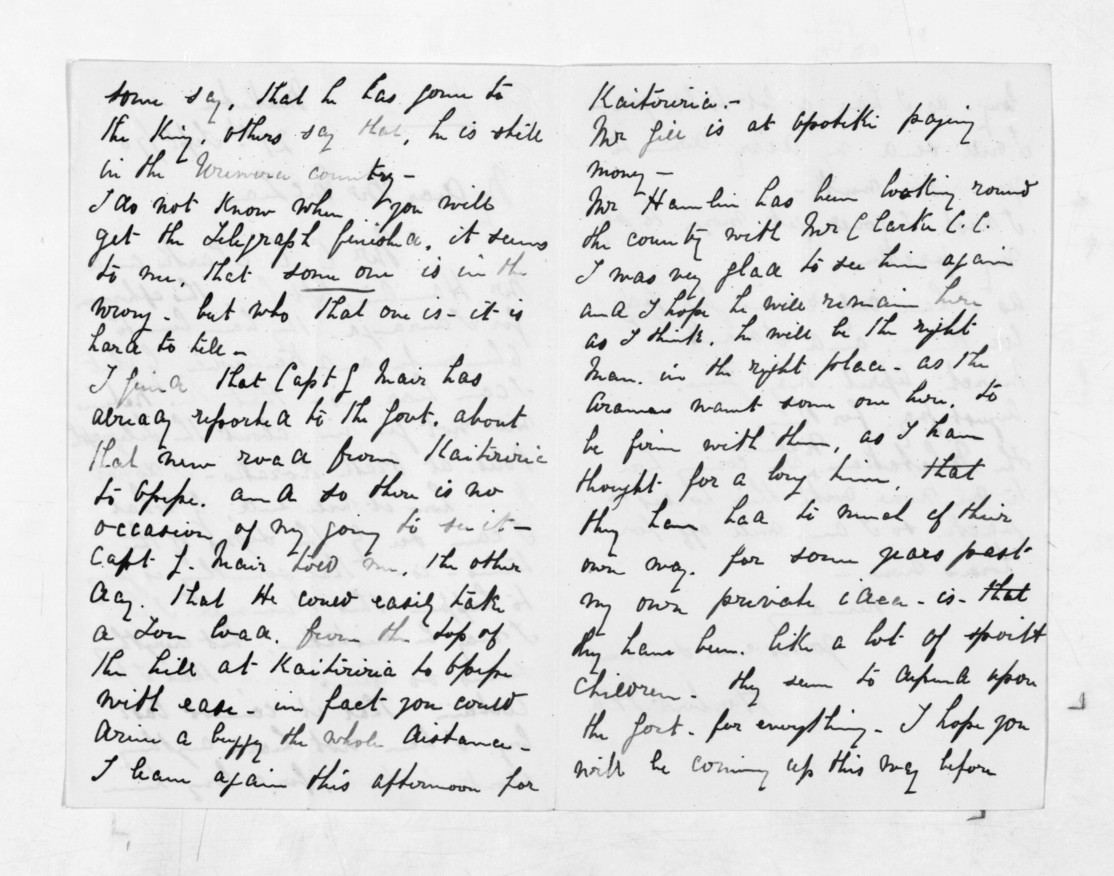 some say, that he has gone to
the King, others say that, he is still
in the Urewera country -
I do not know when you will
get the Telegraph finished, it seems
to me, that some one is in the
wrong - but who that one is - it is
hard to tell -
I find that Capt G Mair has
already reported to the Govt. about
that new road from Kaiteriria
to Opepe. and so there is no
occasion of my going to see it -
Capt G. Mair told me, the other
day. that He could easily take
a Ton load. from the top of
the hill at Kaiteriria to Opepe
with ease - in fact you could
drive a buggy the whole distance -
I leave again this afternoon for
Kaiteriria. -
Mr Gill is at Opotiki paying
money -
Mr Hamlin has been looking round
the country with Mr C Clarke C.C.
I was very glad to see him again
and I hope he will remain here
as I think, he will be the right
Man. in the right place - as the
Arawas want some one here, to
be firm with them, as I have
thought, for a long time, that
they have had to much of their
own way. for some years past
my own private idea - is - that
they have been. like a lot of spoilt
children - they seem to depend upon
the Govt - for everything - I hope you
will be coming up this way before